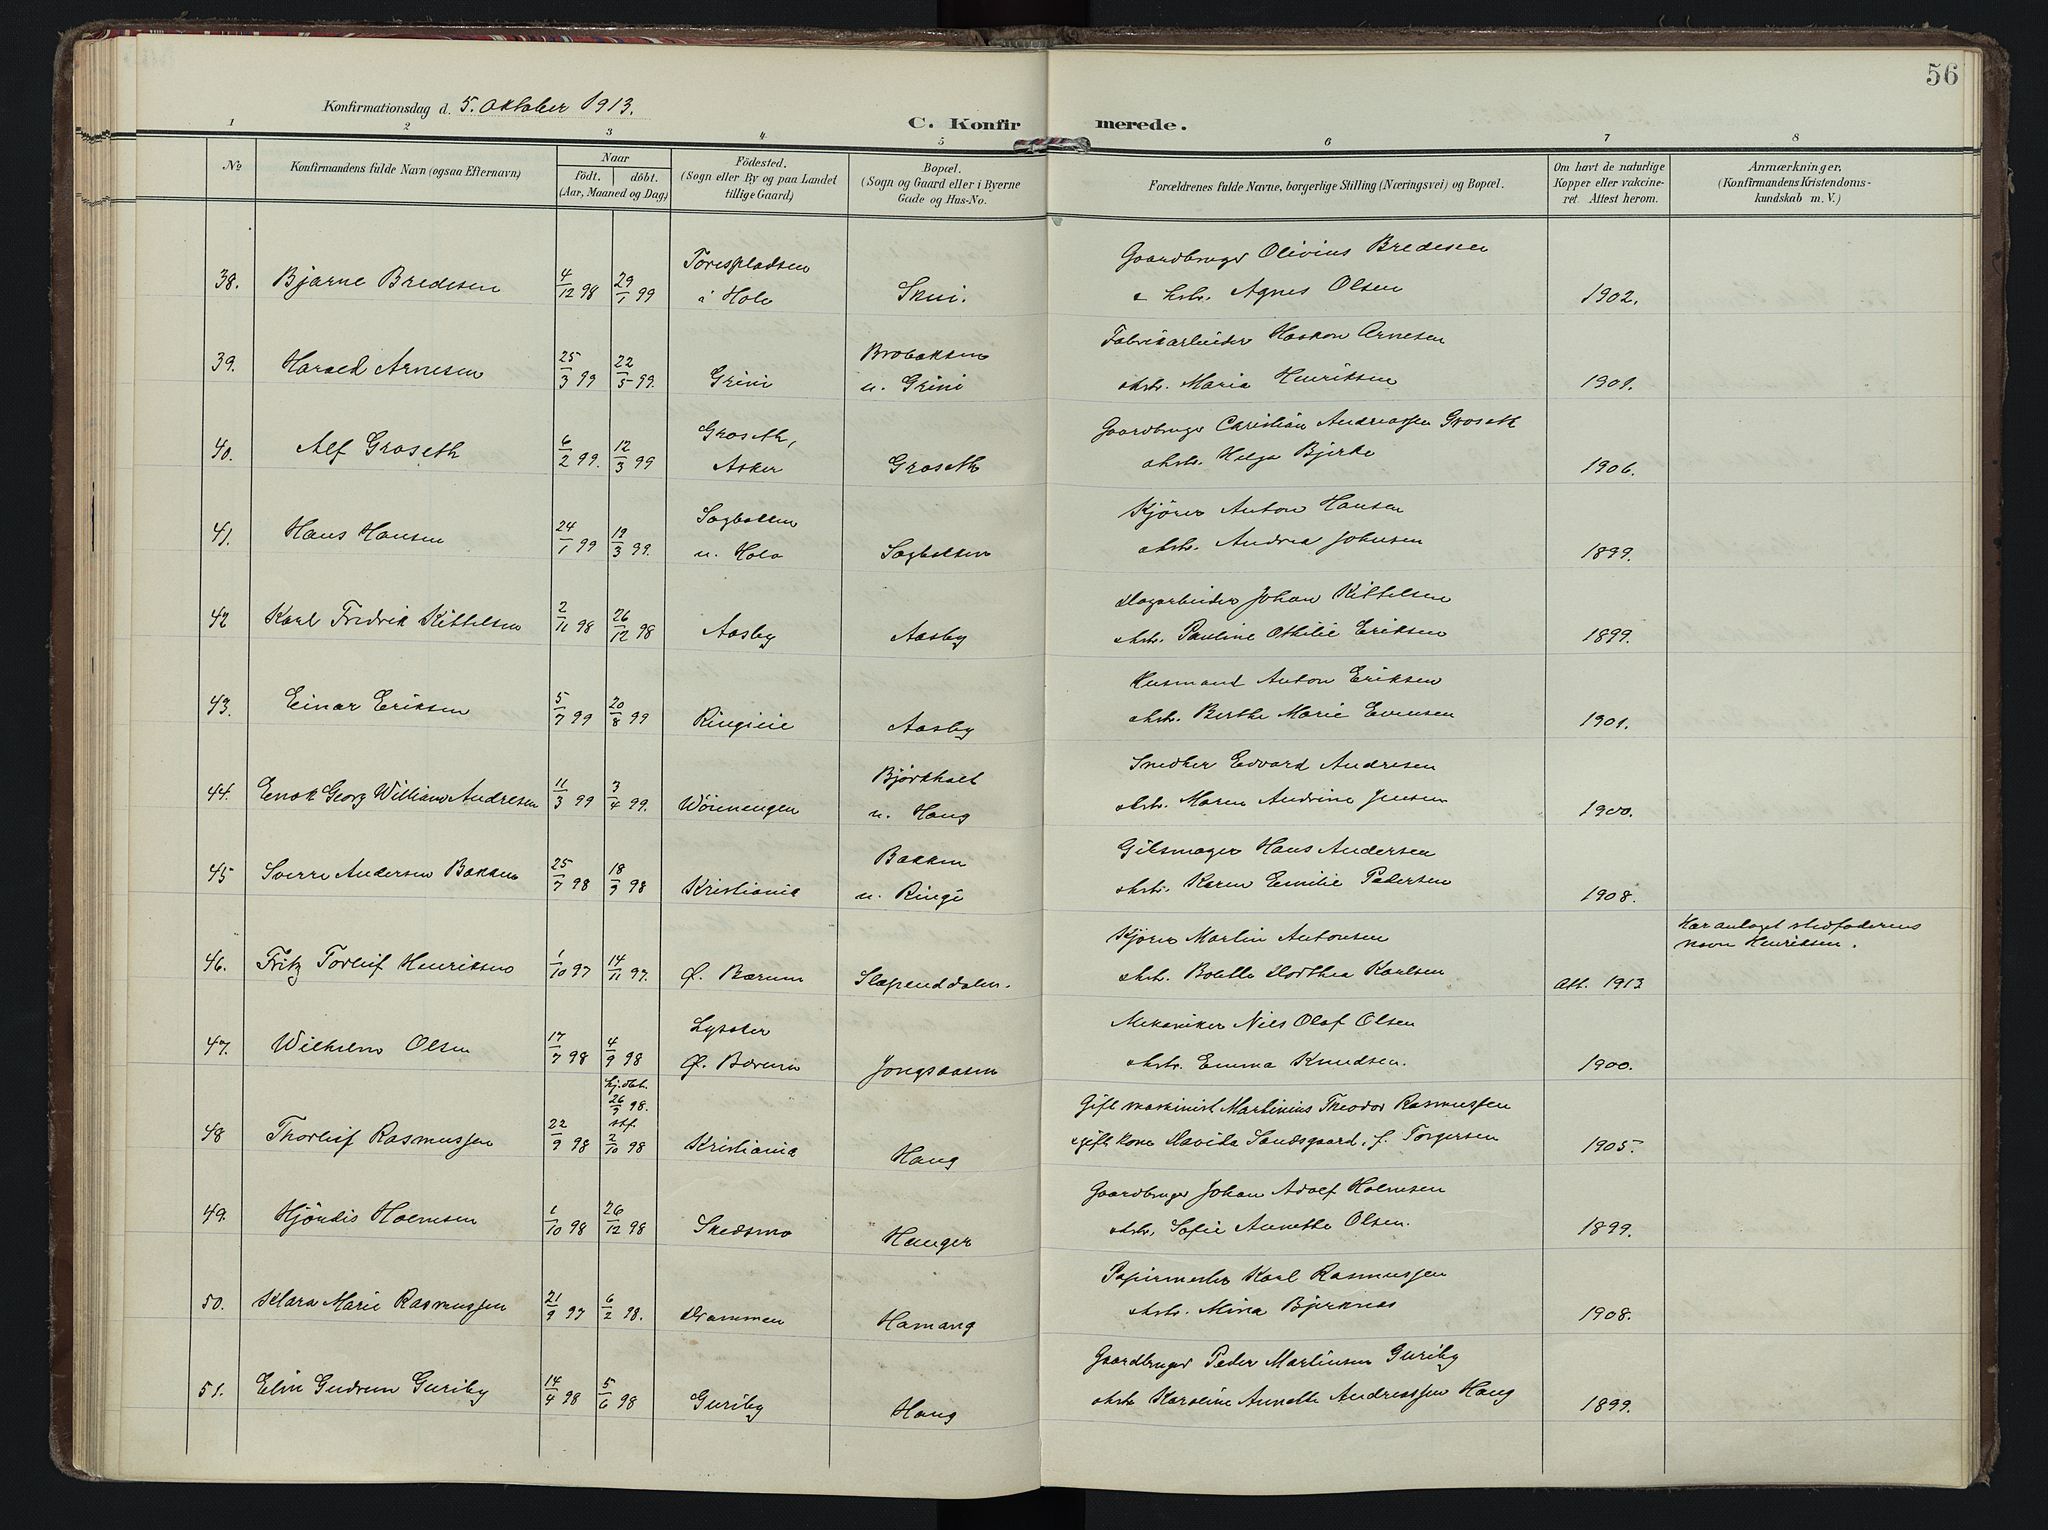 56
Konfirmationsdag d. 5. Oktober 1913.
C. Konfirmerede.
1 2 3 4 5 6 7 8
No
Konfirmandens fulde Navn (ogsaa Efternavn)
Naar
født. døbt.
(Aar, Maaned og Dag)
Fødested.
(Sogn eller By og paa Landet
tillige Gaard)
Bopæl.
(Sogn og Gaard eller i Byerne
Gade og Hus-No.
Forældrenes fulde Navne, borgerlige Stilling (Næringsvei) og Bopæl.
Om havt de naturlige
Kopper eller vakcine-
ret. Attest herom.
Anmærkninger,
(Konfirmandens Kristendoms-
kundskab m. V.)
38. Bjarne Bredesen 4/12 98 29/1 99 Torespladsen
i Holo Skui. Gaardbruger Olivius Bredesen
& hstr. Agnes Olsen 1902.
39. Harald Arnesen 25/3 99 22/5 99. Grini Brobakken
u. Grini Fabrikarbeider Haakon Arnesen
ohstr. Maria Henriksen 1901.
40. Alf Groseth 6/2 99. 12/3 99 Groseth,
Asker Groseth Gaardbruger Christian Andreassen Groseth
ohstr. Helga Bjerke 1906.
41. Hans Hansen 24/1 99 19/3 99. Sagbakken
u. Holo Sagbakken Kjører Anton Hansen
ohstr. Andrea Johnsen 1899.
42 Karl Fredrik Kittelsen 2/11 98 26/12 98 Aasby Aasby Dagarbeider Johan Kittelsen
ohstr. Pauline Othilie Eriksen 1899.
43. Einar Eriksen 5/7 99 20/8 99 Ringieie Aasby Husmand Anton Eriksen
ohstr. Berthe Marie Evensen 1901.
44. Enok Georg William Andresen 11/3 99 3/4 99. Wøienengen Bjørkholt
u. Haug Snedker Edvard Andresen
ohstr. Maren Andrine Jensen 1900.
45 Sverre Andersen Bakken 25/7 98 18/9 98 Kristiania Bakken
u. Ringi Gibsmager Hans Andersen
ohstr. Karen Emilie Pedersen 1908.
46. Fritz Torleif Henriksen 1/10 97 14/11 97. Ø. Bærum Slæpenddalen. Kjører Martin Antonsen
ohstr. Bolette Dorthea Karlsen Att. 1913 Har antaget stedfaderens
navn Henriksen.
47. Wilhelm Olsen 17/7 98 4/9 98 Lysaker
Ø. Bærum Jongsaasen Mekaniker Nils Olaf Olsen
ohstr. Emma Knudsen. 1900.
48 Thorleif Rasmussen 22/9 98 hj.døbt.
26/9 98.
stf.
2/10 98 Kristiania Haug Gift maskinist Martinius Theodor Rasmussen
& gift kone Davida Sandsgaard, f. Torgersen 1905.
49. Hjørdis Holmsen 1/10 98 26/12 98 Skedsmo Hauger Gaardbruger Johan Adolf Holmsen
ohstr. Sofie Annette Olsen. 1899.
50. Klara Marie Rasmussen 21/9 97 6/2 98. Drammen Hamang Papirmester Karl Rasmussen
ohstr. Mina Bjerknes 1908.
51. Elin Gudrun Guriby 14/4 98 5/6 98 Guriby Haug Gaardbruger Peder Martinsen Guriby
ohstr Karoline Annette Andreassen Haug 1899.